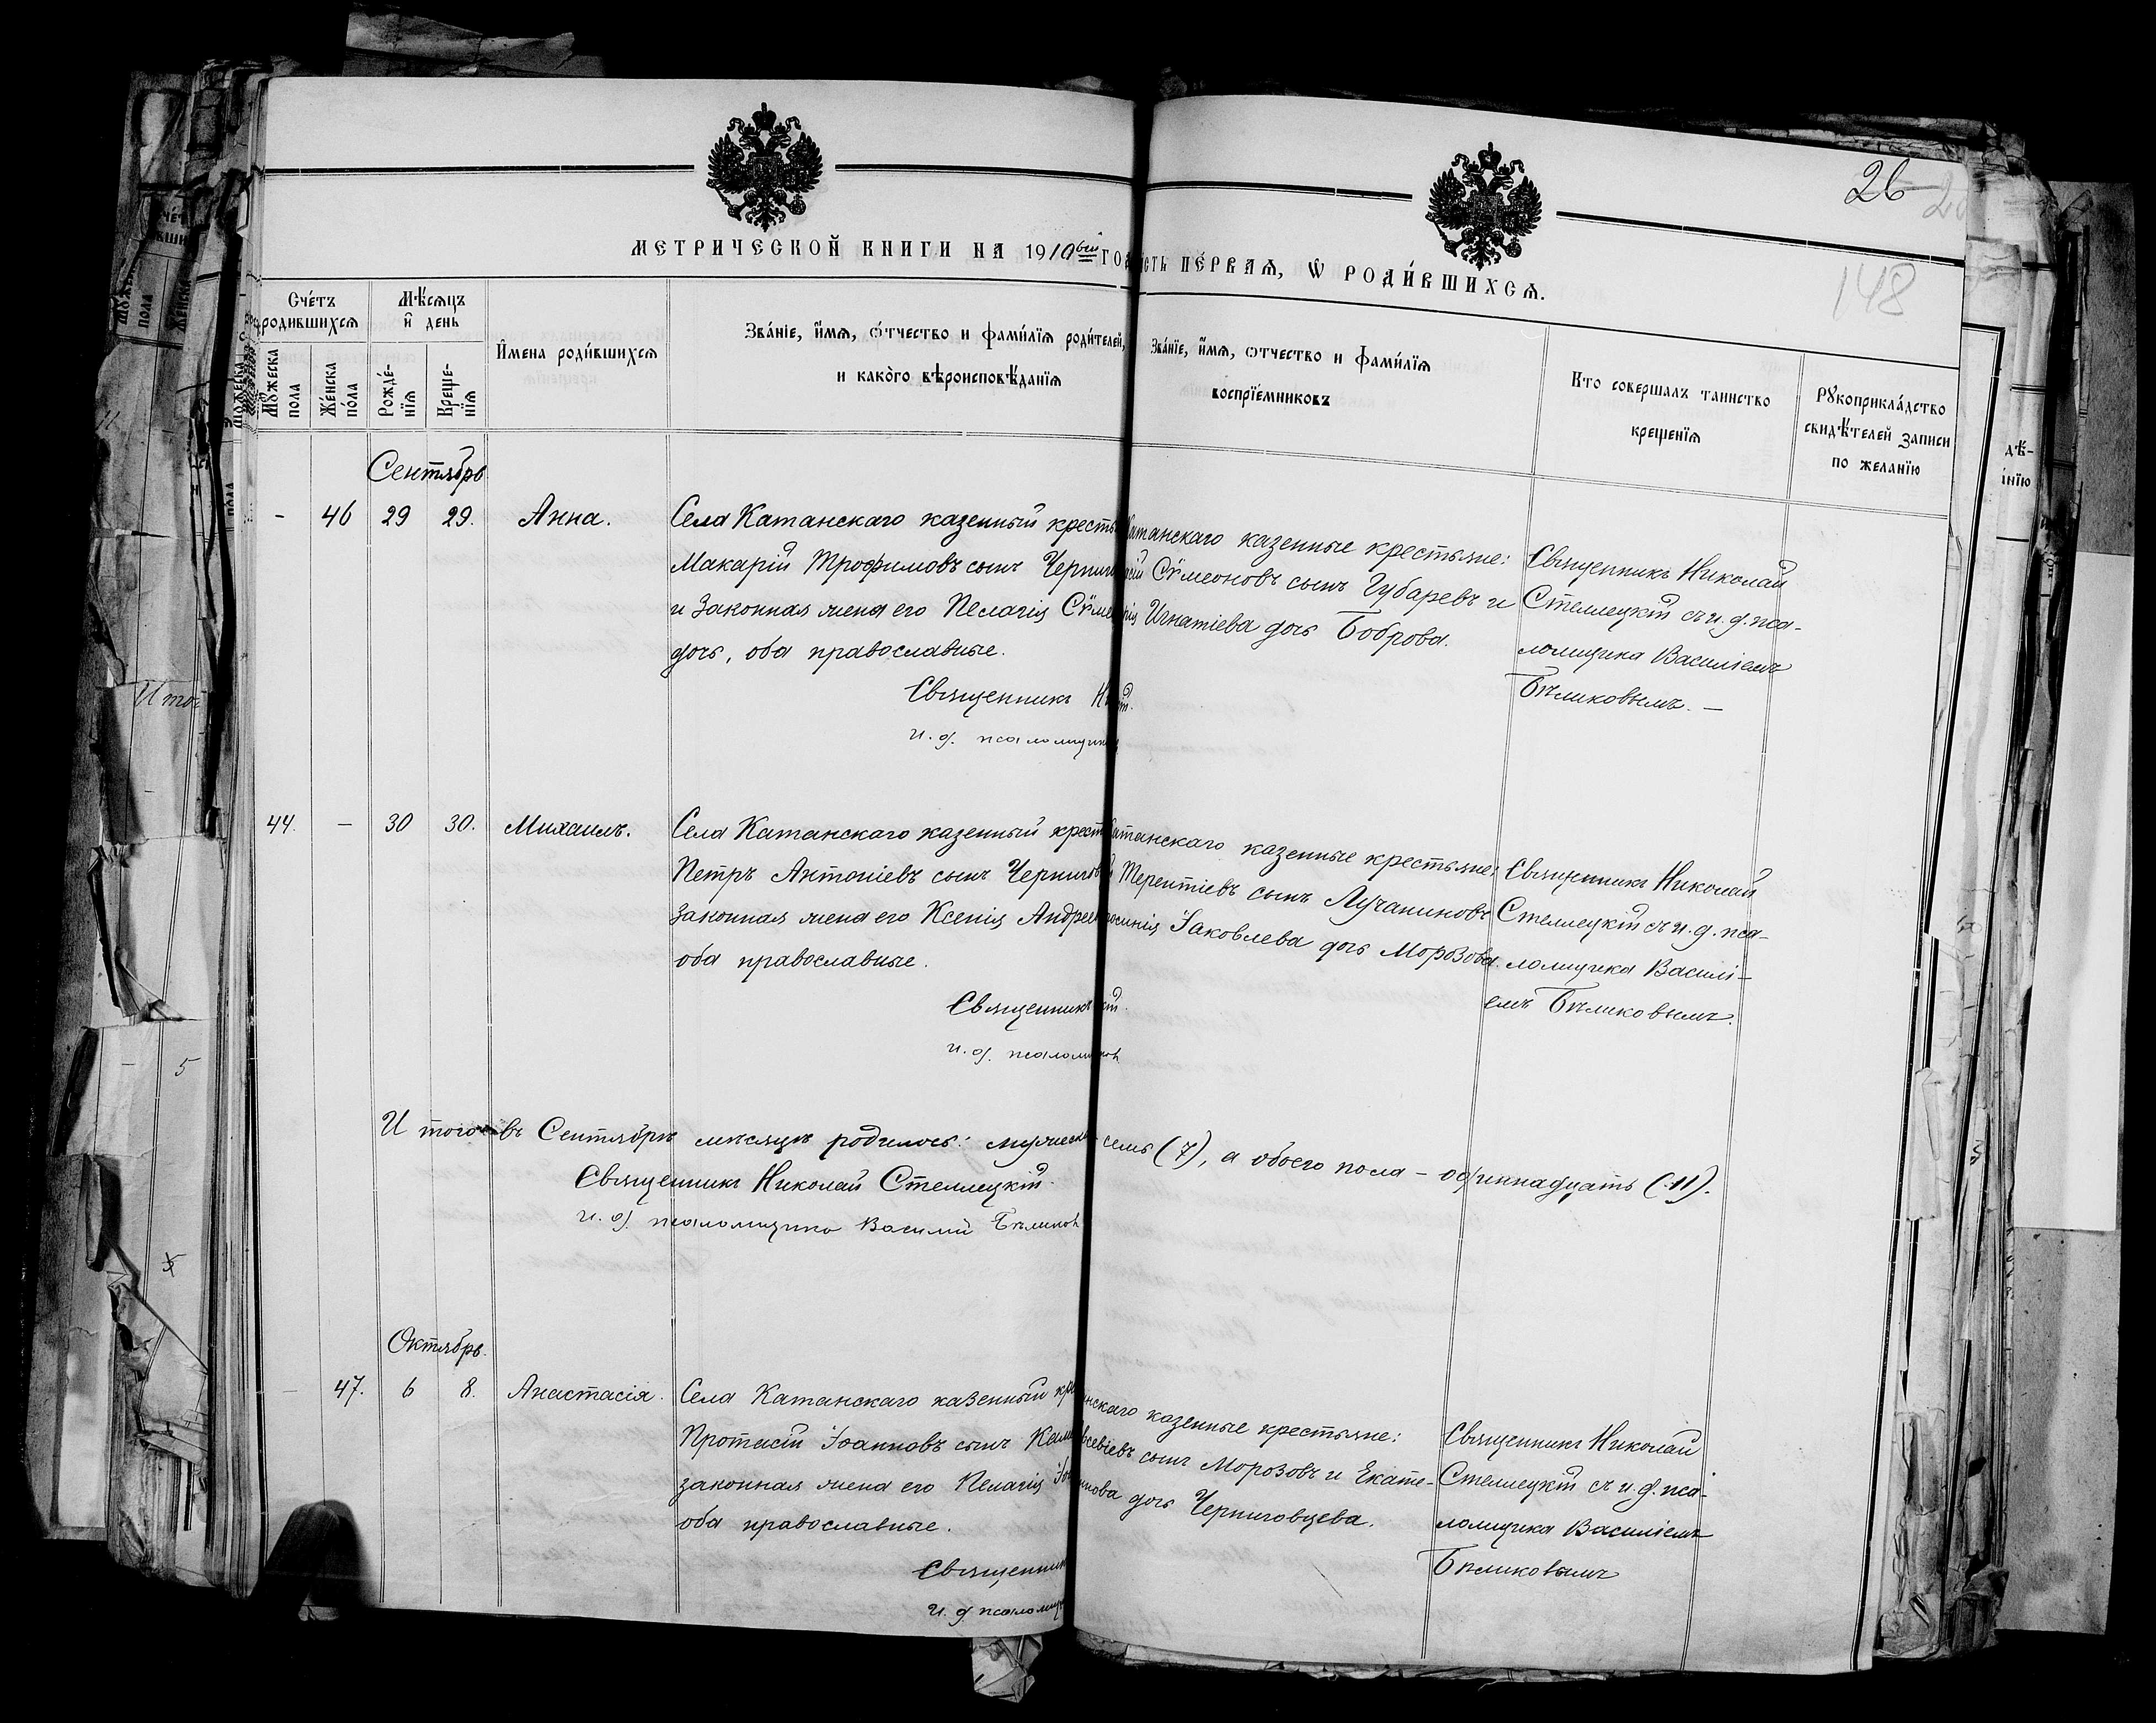 26
148
МЕТРИЧЕСКОЙ КНИГИ НА 1910вый ГОД
СТЬ ПЕРВАЯ, Ѡ РОДИ́ВШИХСЯ.
Сче́тъ родившихся
Мѣ́сяцъ и день
Мужеска пола
Же́нска по́ла
Рожде́нія
Креще́нія
Имена роди́вшихся
Зва́нїе, и́мя, ѻ́тчество и фами́лїя роди́телей, и како́го вѣроисповѣ́данїя
Зва́нїе, и́мя, ѻтчество и фами́лїя воспрїе́мниковъ
Кто совершалъ таинство крещенїя
Рукоприкла́дство свидѣ́телей записи по желанїю
Сентябрь
- 46 29 29. Анна.
Села Катанскаго казенный кресть
Макарій Трофимовъ сынъ Черниг
и законная жена его Пелагія Сѵме
дочь, оба православные.
Священникъ Н
и. д. псаломщика
Катанскаго казенные крестьяне:
Сѵмеоновъ сынъ Губаревъ и
Игнатіева дочь Боброва.
Священникъ Николай
Стеллецкій съ и. д. пса-
ломщика Василіемъ
Бѣликовымъ. —
44. — 30 30. Михаилъ.
Села Катанскаго казенный крест
Петръ Антоніевъ сынъ Чернигов
законная жена его Ксенія Андрее
оба православные.
Священникъ
и. д. псаломщ
атанскаго казенные крестьяне:
Терентіевъ сынъ Лучаниновъ
Іаковлева дочь Морозова.
Священникъ Николай
Стеллецкій съ и. д. пса-
ломщика Василі-
емъ Бѣликовымъ.
Итого въ Сентябрѣ мѣсяцѣ родилось: мужеска
семь (7), а обоего пола – одиннадцать (11).
Священникъ Николай Стеллецкій.
и. д. псаломщика Василій Бѣликов
Октябрь.
— 47. 6 8. Анастасія.
Села Катанскаго казенный кре
Протасій Іоанновъ сынъ
законная жена его Пелагія
оба православные.
Священник
и. д. псаломщ
нскаго казенные крестьяне:
севіевъ сынъ Морозовъ и Екате-
нова дочь Черниговцева.
Священникъ Николай
Стеллецкій съ и. д. пса-
ломщика Василіемъ
Бѣликовымъ